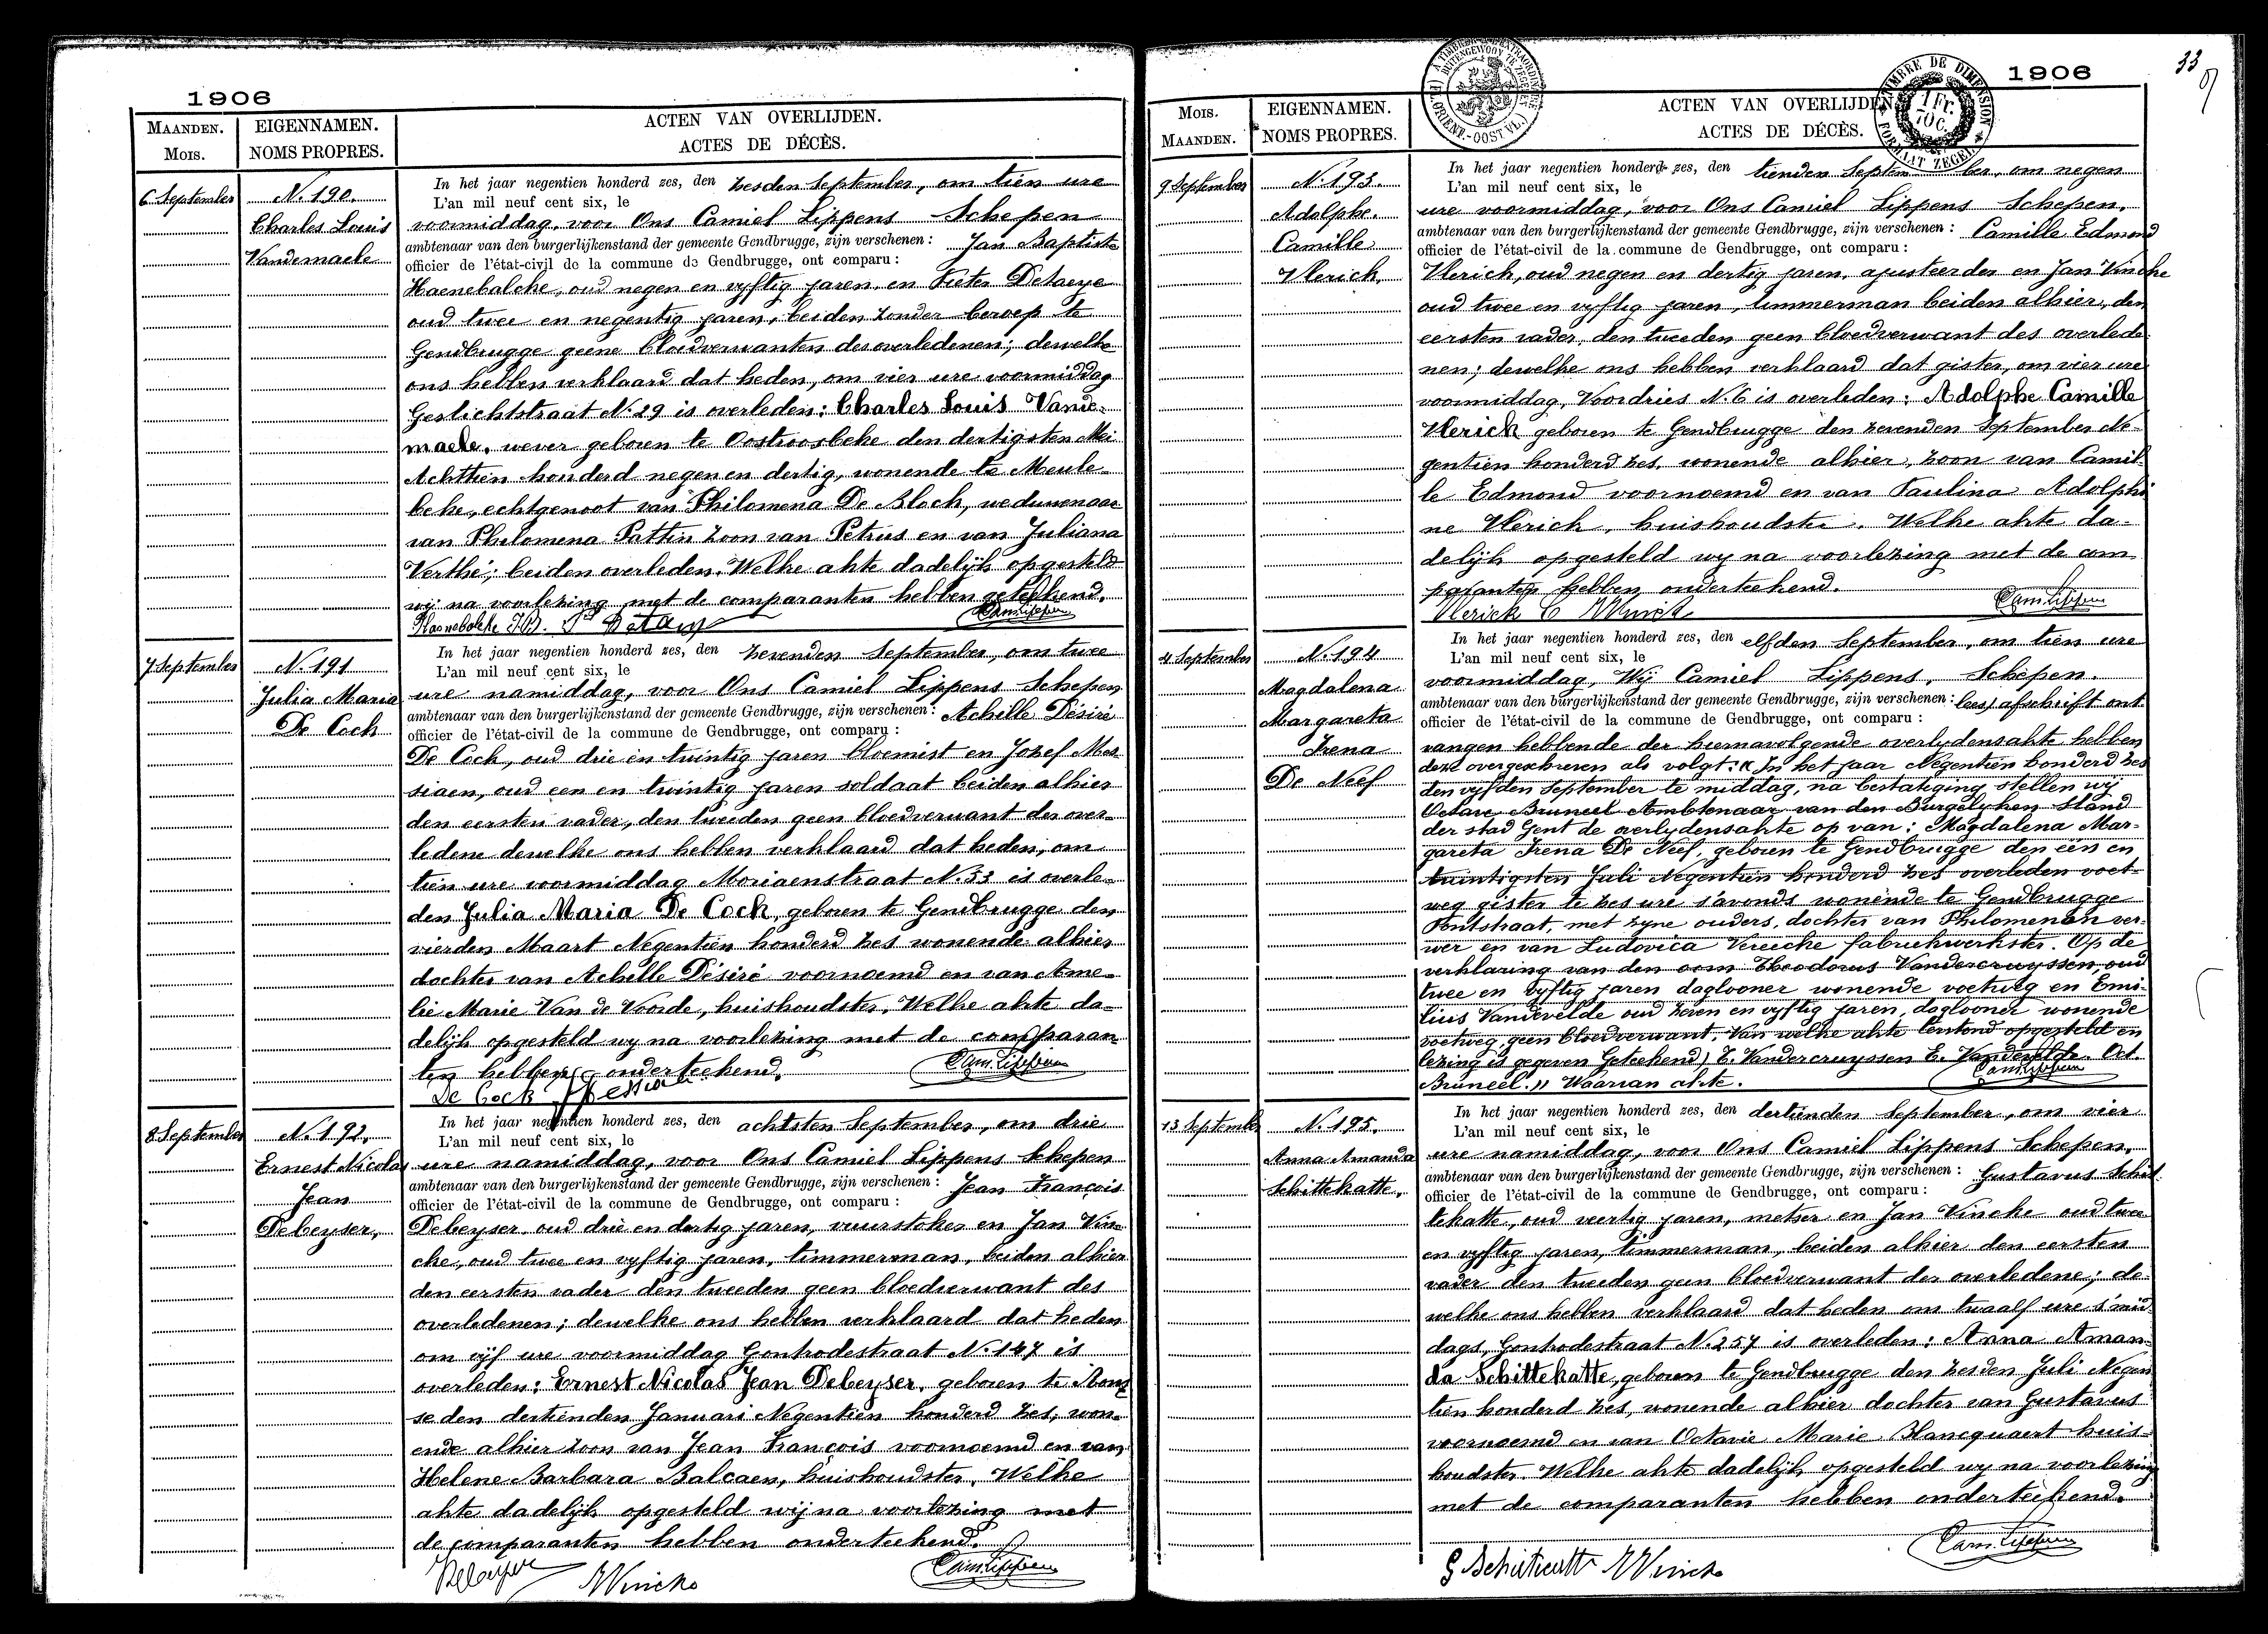 1906
MAANDEN.
MOIS.
EIGENNAMEN.
NOMS PROPRES.
ACTEN VAN OVERLIJDEN.
ACTES DE DÉCÈS.
6 September
N. 190.
Charles Louis
Vandemaele
In het jaar negentien honderd zes, den zesden September, om tien ure
L'an mil neuf cent six, le
voormiddag, voor Ons Camiel Lippens Schepen
ambtenaar van den burgerlijkenstand der gemeente Gendbrugge, zijn verschenen : Jan Baptiste
officier de l'état-civil de la commune de Gendbrugge, ont comparu :
Haenebalcke, oud negen en vyftig jaren, en Pieter Detaeye
oud twee en negentig jaren, beiden zonder beroep te
Gendbrugge geene bloedverwanten des overledenen; dewelke
ons hebben verklaard dat heden, om vier ure voormiddag
Gestichtstraat N. 29 is overleden: Charles Louis Vande-
maele, wever geboren te Oostroosbeke den dertigsten Mei
Achttien honderd negen en dertig, wonende te Meule-
beke, echtgenoot van Philomena De Block, weduwenaar
van Philomena Pattin zoon van Petrus en van Juliana
Verthé; beiden overleden. Welke akte dadelijk opgesteld
wij na voorlezing met de comparanten hebben geteekend.
Haenebalcke J.B. Cam. Lippens
7 September
N. 191
Julia Maria
De Cock
In het jaar negentien honderd zes, den zevenden September, om twee
L'an mil neuf cent six, le
ure namiddag, voor Ons Camiel Lippens Schepen
ambtenaar van den burgerlijkenstand der gemeente Gendbrugge, zijn verschenen : Achille Désiré
officier de l'état-civil de la commune de Gendbrugge, ont comparu :
De Cock, oud drie en twintig jaren bloemist en Jozef Mes-
siaen, oud een en twintig jaren soldaat beiden alhier
den eersten vader, den tweeden geen bloedverwant der over-
ledene dewelke ons hebben verklaard dat heden, om
tien ure voormiddag Moriaenstraat N. 33 is overle-
den Julia Maria De Cock, geboren te Gendbrugge den
vierden Maart Negentien honderd zes wonende alhier
dochter van Achille Désiré voornoemd en van Ame-
lie Marie Van de Voorde, huishoudster. Welke akte da-
delijk opgesteld wy na voorlezing met de comparan
ten hebben onderteekend.
De Cock Messiaen Cam. Lippens
8 September
N. 192.
Ernest Nicolas
Jean
Debeyser,
In het jaar negentien honderd zes, den achtsten September, om drie
L'an mil neuf cent six, le
ure namiddag, voor Ons Camiel Lippens Schepen
ambtenaar van den burgerlijkenstand der gemeente Gendbrugge, zijn verschenen : Jean François
officier de l'état-civil de la commune de Gendbrugge, ont comparu :
Debeyser oud drie en dertig jaren, vuurstoker en Jan Vin-
cke, oud twee en vyftig jaren, timmerman, beiden alhier
den eersten vader den tweeden geen bloedverwant des
overledenen; dewelke ons hebben verklaard dat heden
om vijf ure voormiddag Gontrodestraat N. 147 is
overleden: Ernest Nicolas Jean Debeyser, geboren te Ron
se den dertienden Januari Negentien honderd zes, won-
ende alhier zoon van Jean François voornoemd en van
Helene Barbara Balcaen, huishoudster. Welke
akte dadelijk opgesteld wij na voorlezing met
de comparanten hebben onderteekend.
Debeyser JVincke Cam. Lippens
33
1906
MOIS.
MAANDEN.
EIGENNAMEN.
NOMS PROPRES.
ACTEN VAN OVERLIJDEN
ACTES DE DÉCÈS.
TIMBRE DE DIMENSION
1 Fr.
70 C.
FORMAAT ZEGEL
9 September
N. 193.
Adolphe.
Camille
Vlerick,
In het jaar negentien honderd zes, den tienden September, om negen
L'an mil neuf cent six, le
ure voormiddag, voor Ons Camiel Lippens Schepen,
ambtenaar van den burgerlijkenstand der gemeente Gendbrugge, zijn verschenen : Camille Edmond
officier de l'état-civil de la commune de Gendbrugge, ont comparu :
Vlerick, oud negen en dertig jaren, ajusteerder en Jan Vincke
oud twee en vyftig jaren, timmerman beiden alhier, den
eersten vader, den tweeden geen bloedverwant des overlede
nen; dewelke ons hebben verklaard dat gister, om vier ure
voormiddag, Voordries N. 6 is overleden: Adolphe Camille
Vlerick geboren te Gendbrugge den zevenden September Ne-
gentien honderd zes, wonende alhier, zoon van Camil-
le Edmond voornoemd en van Paulina Adolphi
ne Vlerick, huishoudster. Welke akte da-
delijk opgesteld wy na voorlezing met de com
paranten hebben onderteekend.
Vlerick C JVincke Cam. Lippens
11 September
N. 194
Magdalena
Margareta
Irena
De Neef
In het jaar negentien honderd zes, den elfden September, om tien ure
L'an mil neuf cent six, le
voormiddag, Wij Camiel Lippens, Schepen.
ambtenaar van den burgerlijkenstand der gemeente Gendbrugge, zijn verschenen : afschrift ont
officier de l'état-civil de la commune de Gendbrugge, ont comparu :
vangen hebbende der hiernavolgende overlydensakte hebben
deze overgeschreven als volgt: « In het jaar Negentien honderd zes
den vyfden September te middag, na bestatiging stellen wij
Octave Bruneel Ambtenaar van den Burgelyken stand
der stad Gent de overlydensakte op van: Magdalena Mar-
gareta Irena De Neef, geboren te Gendbrugge den een en
twintigsten Juli Negentien honderd zes overleden voet-
weg gister te zes ure s'avonds wonende te Gendbrugge
Pontstraat, met zyne ouders, dochter van Philomenan ver-
wer en van Ludovica Vereecke fabriekwerkster. Op de
verklaring van den oom Theodorus Vandercruyssen, oud
twee en vyftig jaren daglooner wonende voetweg en Emi-
lius Vandevelde oud zeven en vyftig jaren, daglooner wonende
voetweg, geen bloedverwant. Van welke akte terstond opgesteld en
lezing is gegeven Geteekend) T. Vandercruyssen E. Vandevelde. Oct.
Bruneel. » Waarvan akte. Cam. Lippens
13 September
N. 195.
Anna Amanda
Schittekatte,
In het jaar negentien honderd zes, den dertienden September, om vier
L'an mil neuf cent six, le
ure namiddag, voor Ons Camiel Lippens Schepen,
ambtenaar van den burgerlijkenstand der gemeente Gendbrugge, zijn verschenen : Gustavus Schit
officier de l'état-civil de la commune de Gendbrugge, ont comparu :
tekatte, oud veertig jaren, metser en Jan Vincke oud twee
en vyftig jaren, timmerman, beiden alhier den eersten
vader den tweeden geen bloedverwant der overledene; de-
welke ons hebben verklaard dat heden om twaalf ure s'mid-
dags, Gontrodestraat N. 257 is overleden: Anna Aman-
da Schittekatte, geboren te Gendbrugge den zesden Juli Negen
tien honderd zes, wonende alhier dochter van Gustavus
voornoemd en van Octavie Marie Blancquaert huis-
houdster. Welke akte dadelijk opgesteld wy na voorlezing
met de comparanten hebben onderteekend.
G Schittecatte JVincke Cam. Lippens